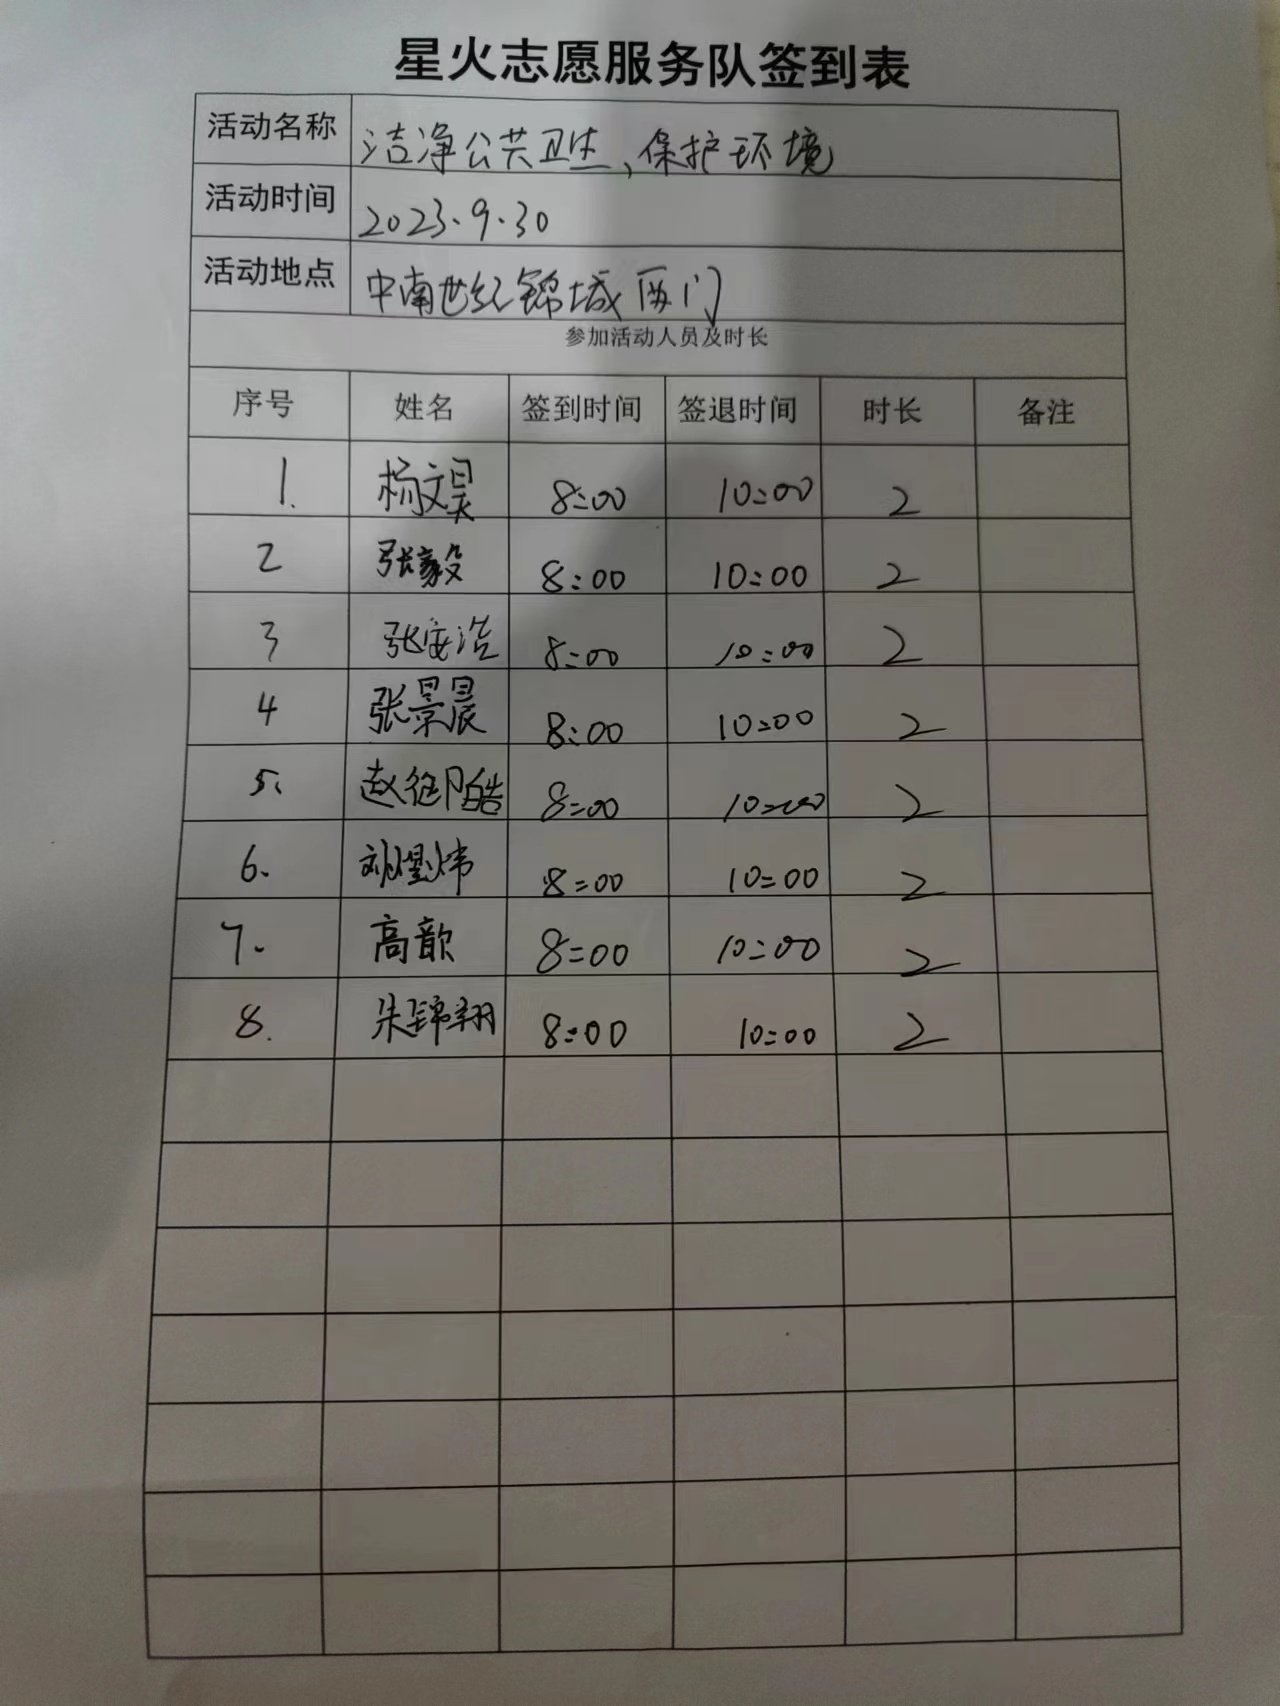 星火志愿服务队签到表
活动名称 洁净公共卫生,保护环境
活动时间 2023.9.30
活动地点 中南世纪锦城西门
参加活动人员及时长
序号 姓名 签到时间 签退时间 时长 备注
1. 杨文昊 8:00 10:00 2
2 张毅 8:00 10:00 2
3 张安浩 8:00 10:00 2
4 张景晨 8:00 10:00 2
5. 赵 皓 8:00 10:00 2
6. 刘煜炜 8:00 10:00 2
7. 高歆 8:00 10:00 2
8. 朱锦翔 8:00 10:00 2